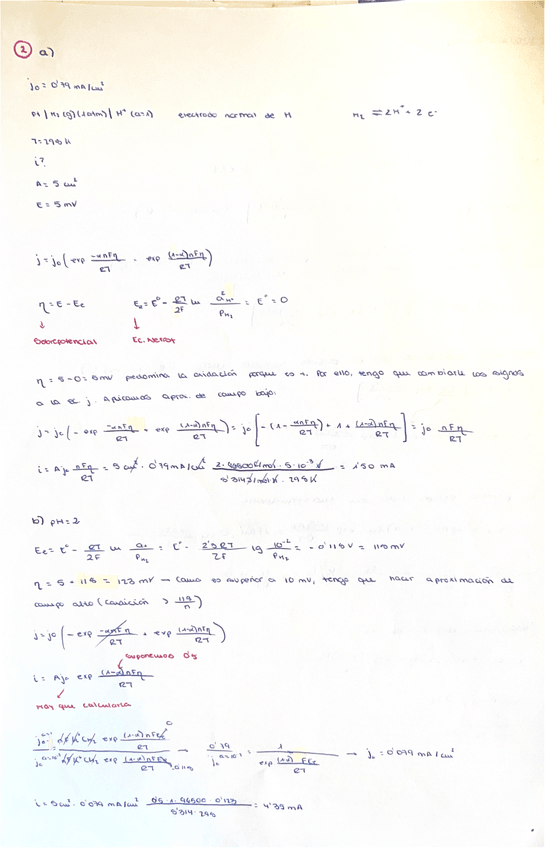 2 a)
j₀ = 0'79 mA/cm²
Pt | H₂ (g) (1atm) | H⁺ (a=1) electrodo normal de H H₂ ⇌ 2H⁺ + 2e⁻
T = 298 K
i?
A = 5 cm²
E = 5 mV
j = j₀ ( exp -αnFη/RT - exp (1-α)nFη/RT )
η = E - Ee Ee = E° - RT/2F ln a²H⁺/PH₂ = E° = 0
Sobrepotencial Ec. Nernst
η = 5 - 0 = 5mV predomina la oxidación porque es +. Por ello, tengo que cambiarle los signos
a la ec j. Aplicamos aprox. de campo bajo:
j = j₀ ( - exp -αnFη/RT + exp (1-α)nFη/RT ) = j₀ [ - (1 - αnFη/RT) + 1 + (1-α)nFη/RT ] = j₀ nFη/RT
i = A j₀ nFη/RT = 5 cm² · 0'79 mA/cm² 2 · 96500 C/mol · 5·10⁻³ V / 8'314 J/mol K · 298 K = 1'50 mA
b) pH = 2
Ee = E° - RT/2F ln /PH₂ = E° - 2'3RT/2F lg 10⁻²/PH₂ = - 0'118 V = 118 mV
η = 5 + 118 = 123 mV → Como es superior a 10 mV, tengo que hacer aproximación de
campo alto (condición > 118/n)
j = j₀ ( - exp -αnFη/RT + exp (1-α)nFη/RT )
suponemos 0'5
i = A j₀ exp (1-α)nFη/RT
Hay que calcularla
0'79 / j₀ = 1 / exp (1-α) FEe/RT → j₀ = 0'079 mA/cm²
i = 5cm² · 0'079 mA/cm² 0'5 · 1 · 96500 · 0'123 / 8'314 · 298 = 4'39 mA